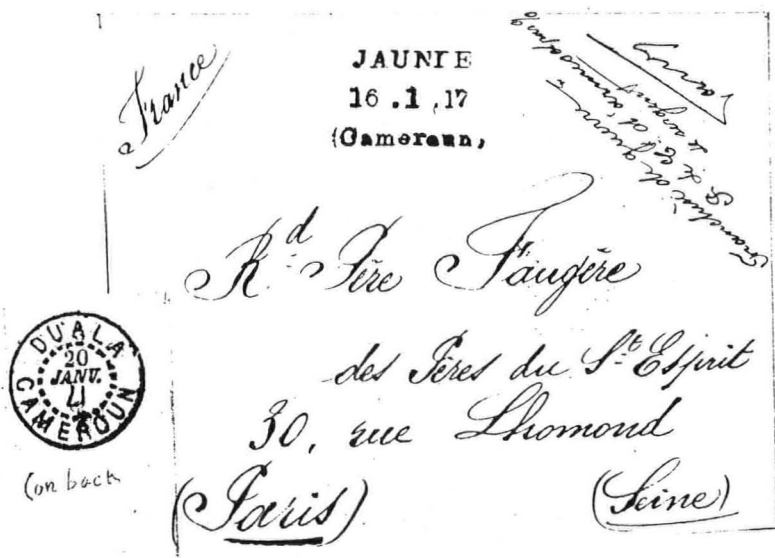 France
JAUNIE
16.1.17
(Cameroun,
Franchise de guerre
R^d Père Faugère
des Pères du S^t Esprit
30, rue Lhomond
(Paris)
(Seine)
DUALA
20
JANV.
CAMEROUN
(on back